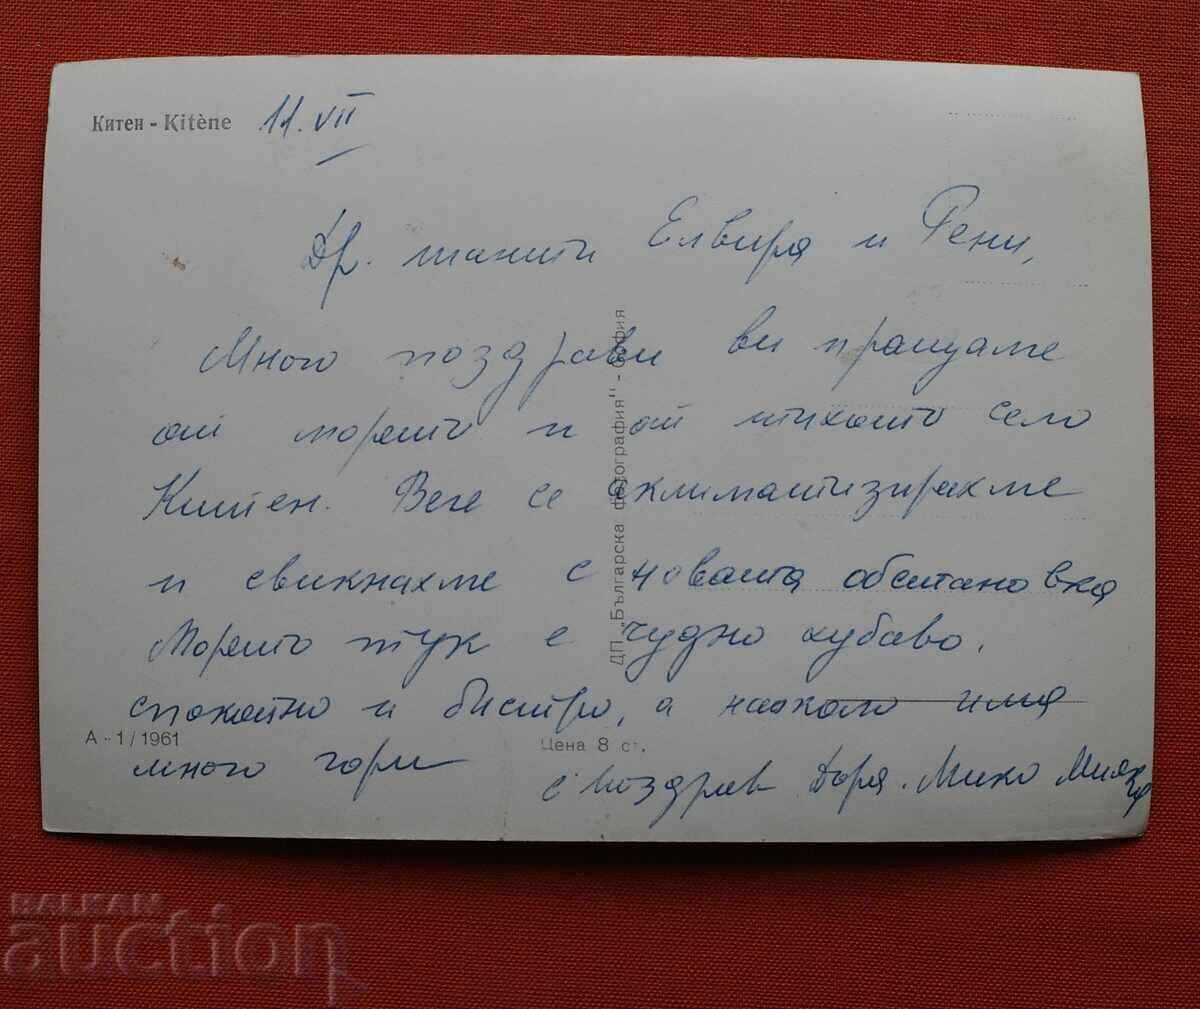 Китен - Kitène 11. VII
Др. танти Елвира и Рени,
Много поздрави ви пращаме
от морето и от тихото село
Китен. Вече се аклиматизирахме
и свикнахме с новата обстановка
Морето тук е чудно хубаво,
спокойно и бистро, а наоколо има
много гори
с поздрав Доря. Мико
А - 1 / 1961
Цена 8 ст.
ДП „Българска фотография" - София
BALKAN
auction